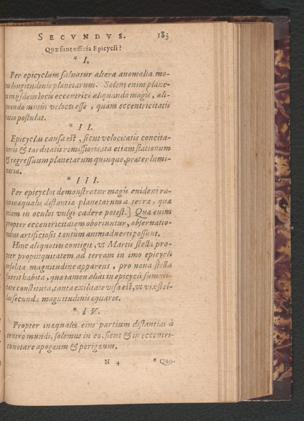 SECVNDVS. 183
Quæ sunt officia Epicycli?
* I.
Per epicyclum saluatur altera anomalia mo-
tus longitudinis planetarum. Solent enim plane-
tæ in ijsdem locis eccentrici aliquando magis, ali-
quando minus velóces esse, quàm eccentricitatis
ratio postulat.
* II.
Epicyclus causa est, sicut velocitatis concita-
tioris & tarditatis remissioris, ita etiam stationum
& regressuum planetarum quinque, præter lumi-
naria.
* III.
Per epicyclos demonstratur magis euidens ra-
tio inæqualis distantiæ planetarum à terra, quæ
etiam in oculos vulgi cadere potest.] Quæ enim
propter eccentricitatem oboriuntur, obseruatio-
nibus artificiosis tantùm animaduerti possunt.
Hinc aliquoties contigit, vt Martis stella prop-
ter propinquitatem ad terram in imo epicycli
insolita magnitudine apparens, pro noua stella
fuerit habita, quæ tamen aliàs in epicycli summi-
tate constituta, tanta exilitate visa est, vt vix stel-
las secundæ magnitudinis æquaret.
* IV.
Propter inæquales eius partium distantias à
centro mundi, solemus in eo, sicut & in eccentri-
co notare apogæum & perigæum.
N 4 * Quo-